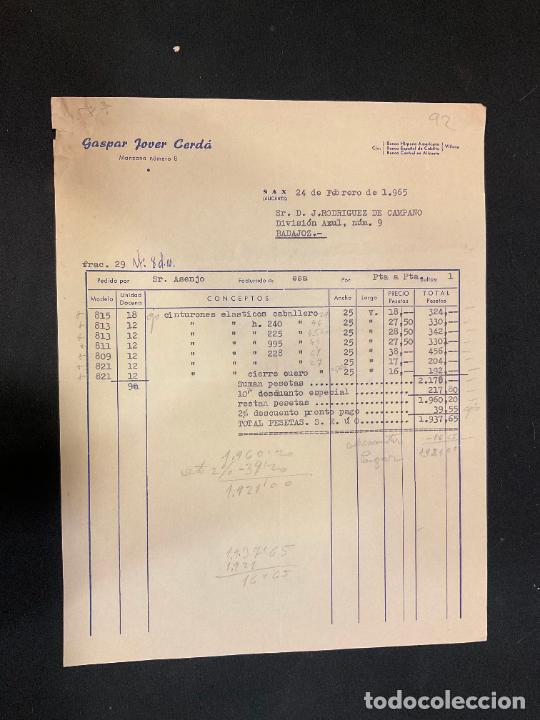 92
Gaspar Jover Cerdá
Manzana número 8
C/c. Banco Hispano Americano
Banco Español de Crédito Villena
Banco Central en Almería
SAX
(ALICANTE)
24 de Febrero de 1.965
Sr. D. J.RODRIGUEZ DE CAMPANO
División Azul, núm. 9
BADAJOZ.-
frac. 29
Pedido por Sr. Asenjo Facturado en esa Por Pta a Pta Bultos 1
Modelo Unidad Docena CONCEPTOS Ancho Largo PRECIO Pesetas TOTAL Pesetas
815 18 cinturones elasticos caballero 25 v. 18,- 324,-
813 12 " " h. 240 " 25 " 27,50 330,-
813 12 " " " 225 " 25 " 28,50 342,-
811 12 " " " 995 " 25 " 27,50 330,-
809 12 " " " 228 " 25 " 38,- 456,-
821 12 " " " 25 " 17,- 204,-
821 12 " " cierre cuero " 25 " 16,- 192,-
90 Suman pesetas 2.178,-
10% descuento especial 217,80
restan pesetas 1.960,20
2% descuento pronto pago 39,55
TOTAL PESETAS. S. E. u O. 1.937,65
1.960'20
2% -39'20
1.921'00
1.937'65
1.921
16'65
todocoleccion
todocoleccion.net